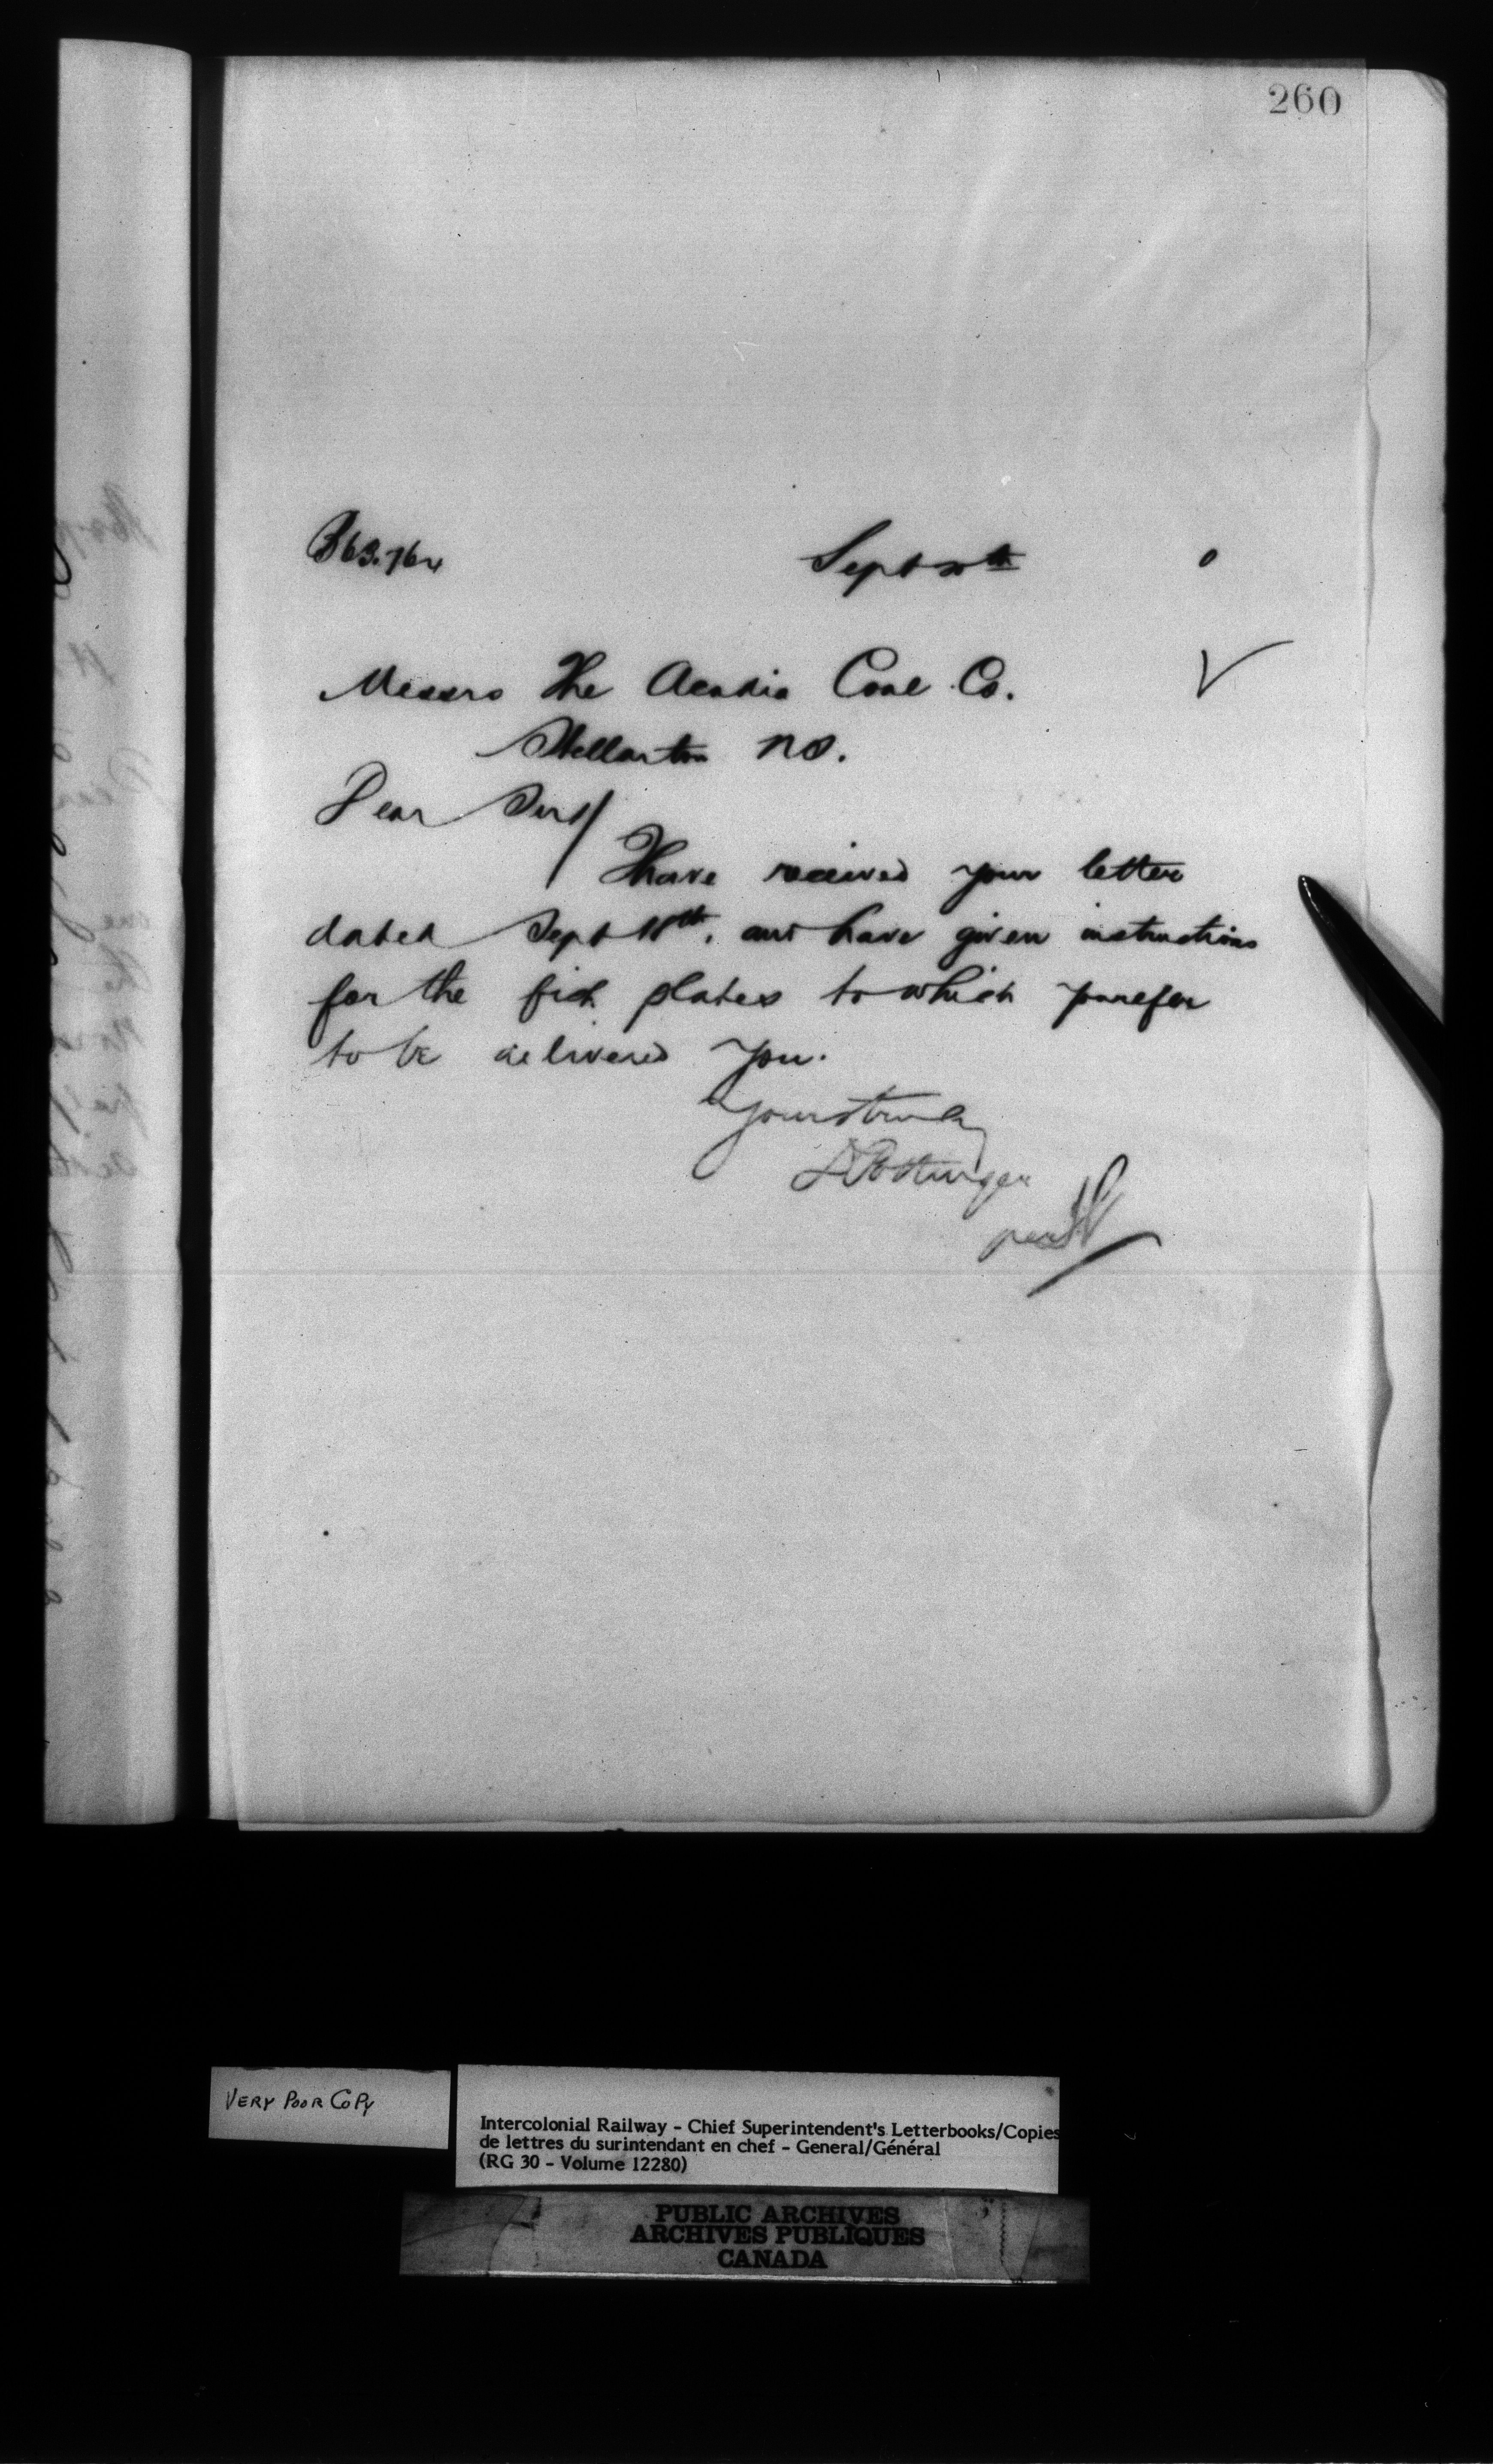 260
Sept 20th 0
Messrs The Acadia Coal Co.
Stellarton NS.
Dear Sirs/
I have received your letter
dated Sept 18th, and have given instructions
for the fish plates to which you refer
to be delivered you.
Yours truly
D Pottinger
per
VERY POOR COPY
Intercolonial Railway - Chief Superintendent's Letterbooks/Copies
de lettres du surintendant en chef - General/Général
(RG 30 - Volume 12280)
PUBLIC ARCHIVES
ARCHIVES PUBLIQUES
CANADA